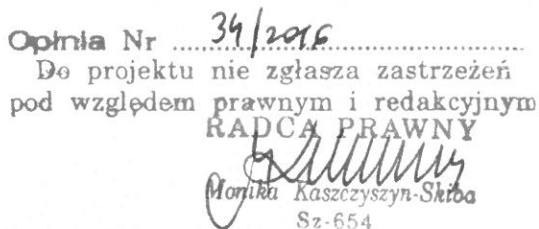 Opinia Nr ..... 34/2016 .....
Do projektu nie zgłasza zastrzeżeń
pod względem prawnym i redakcyjnym
RADCA PRAWNY
Monika Kaszczyszyn-Skiba
Sz-654